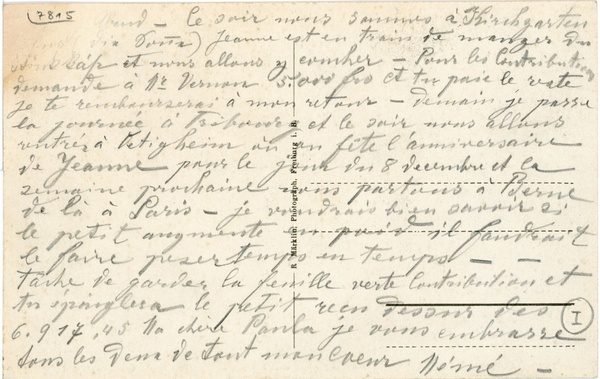 7815
le soir nous sommes à Kirchgarten
Jeanne est en train de manger du
et nous allons y coucher - Pour les Contributions
demande à Mr Vernon 5.000 frs et tu paie le reste
je te rembourserai a mon retour - demain je passe
la journée à Fribourg et le soir nous allons
rentrér à on fête l'anniversaire
de Jeanne pour le jour du 8 decembre et la
semaine prochaine nous partons à Berne
de là à Paris - je voudrais bien savoir si
le petit augmente en poid il faudrait
le faire peser temps en temps - -
tache de garder la feuille verte Contribution et
tu épinglera le petit recu dessus des
6.917,45 Ma chère Paula je vous embrasse
tous les deux de tout mon Coeur Mémé -
R. Märklin, Photograph, Freiburg i. B.
I